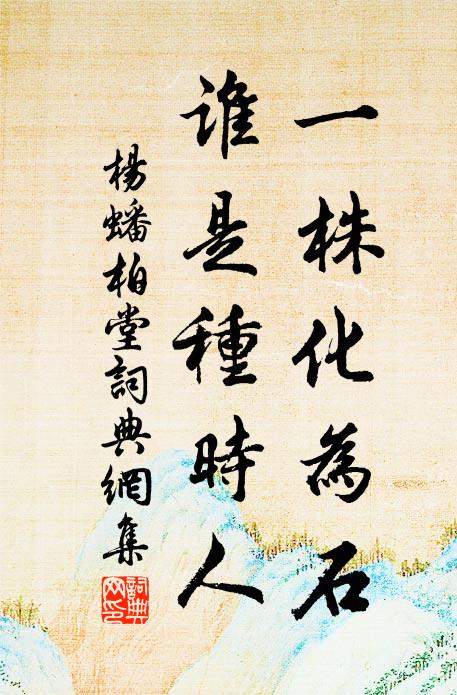 一株化為石
誰是種時人
楊蟠柏堂詞典網集
詞典网印